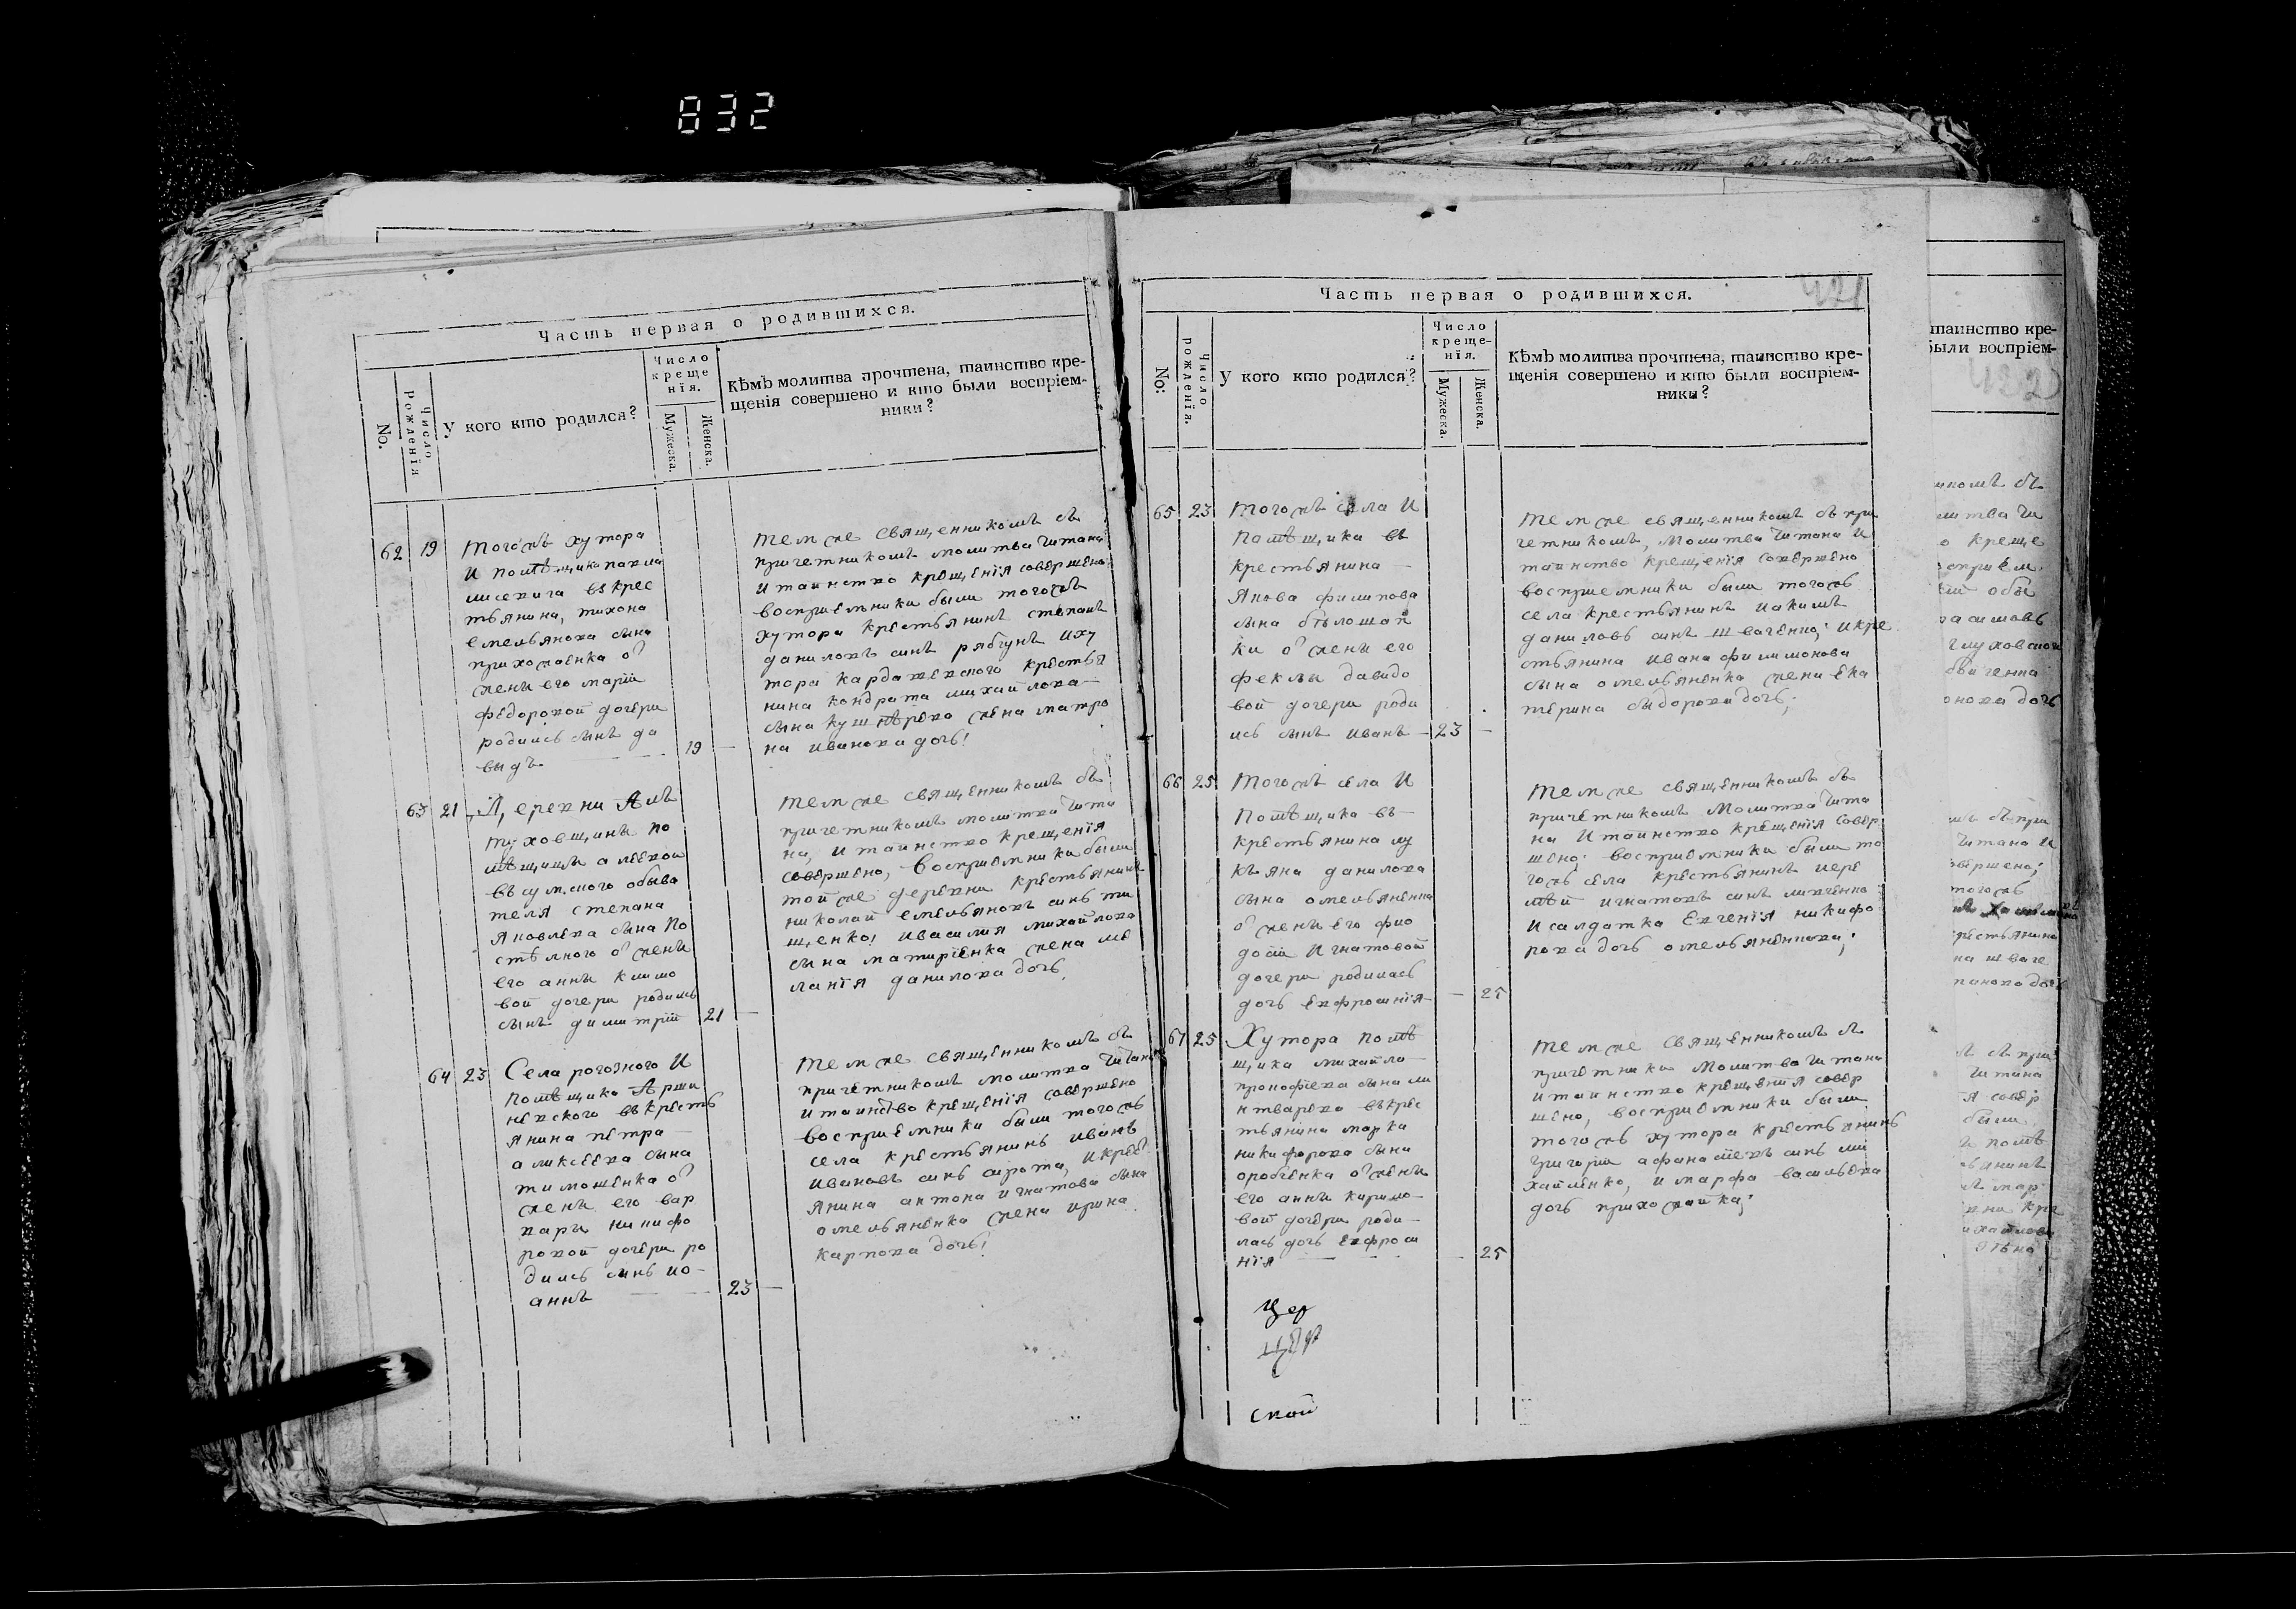 832
Часть первая о родившихся.
No.
Число рожденїя
У кого кто родился?
Число
креще
нїя.
Мужеска.
Женска.
Кѣмъ молитва прочтена, таинство кре-
щенїя совершено и кто были воспрїем-
ники?
62 19
тогожъ хутора
и помѣщика
вѣ крес
тьянина, тихона
емельянова сына
прихоженка о
жены его марїи
федоровой дочери
родился сынъ да
выдъ 19
темже священникомъ съ
причетникомъ молитва читана
и таинство крещенїя совершено
восприемники были тогожъ
хутора крестьянинъ степанъ
даниловъ синъ рябгунъ и ху
тора кардашевского крестья
нина кондрата михайлова
сына кушнѣрева жена матро
на иванова дочь!
63 21
Деревни
туховщины по
мѣщицы
въ сумского обыва
теля степана
яковлева сына по
стѣлного о жены
его анны климо
вой дочери родилсь
сынъ димитрїй 21
темже священникомъ съ
причетникомъ молитва чита
на, и таинство крещенїя
совершено, восприемники были
той же деревни крестьянинъ
николай емельяновъ синъ ти
щенко! и василия михайлова
сына матирїенка жена ме
ланїя данилова дочь.
64 23
Села рогозного и
помѣщика Арши
невского вѣ кресть
янина петра
аликсеева сына
тимошенка о
жены его вар
вары никифо
ровой дочери ро
дилсь синъ ио-
аннъ 23
темже священникомъ съ
причетникомъ молитва читана
и таинство крещенїя совершено
восприемники были тогожъ
села крестьянинъ иванъ
ивановъ синъ сирота, и крес
янина антона игнатова сына
омельяненка жена ирина
карпова дочь!
Часть первая о родившихся.
421
No:
Число рожденїя.
У кого кто родился?
Число
креще-
нїя.
Мужеска.
Женска.
Кѣмъ молитва прочтена, таинство кре-
щенїя совершено и кто были воспрїем-
ники?
65 23
тогожъ села и
помѣщика вѣ
крестьянина
якова филипова
сына бѣлошап
ки о жены его
феклы давидо
вой дочери роди
ись сынъ иванъ 23
темже священникомъ съ при
четникомъ, молитва читана и
таинство крещенїя совершено
восприемники были тогожъ
села крестьянинъ иакимъ
даниловъ синъ шваченко; и кре
стьянина ивана филимонова
сына омельяненка жена ека
терина сыдорова дочь;
66 25
тогожъ села и
помѣщика въ
крестьянина лу
къяна данилова
сына омельяненка
о жены его фио
досїи игнатовой
дочери родилась
дочь евфросинїя 25
темже священникомъ съ
причетникомъ молитва чита
на и таинство крещенїя совер
шено; восприемники были то
гожъ села крестьянинъ иере
мѣй игнатовъ синъ
и салдатка евгенїя никифо
рова дочь омельяненкова;
67 25
Хутора помѣ
щика михайла
прокофїева сына ли
нтварева вѣ крес
тьянина марка
никифорова сына
оробченка о жены
его анны кирило
вой дочери роди
лась дочь евфроси
нїя 25
темже священникомъ съ
причетники молитва читана
и таинство крещения совер
шено, восприемники были
тогожъ хутора крестьянинъ
григорїи афанасїевъ синъ ми
хайленко, и марфа василъева
дочь прихожайка;
Цер
ской
таинство кре-
были воспрїем-
422